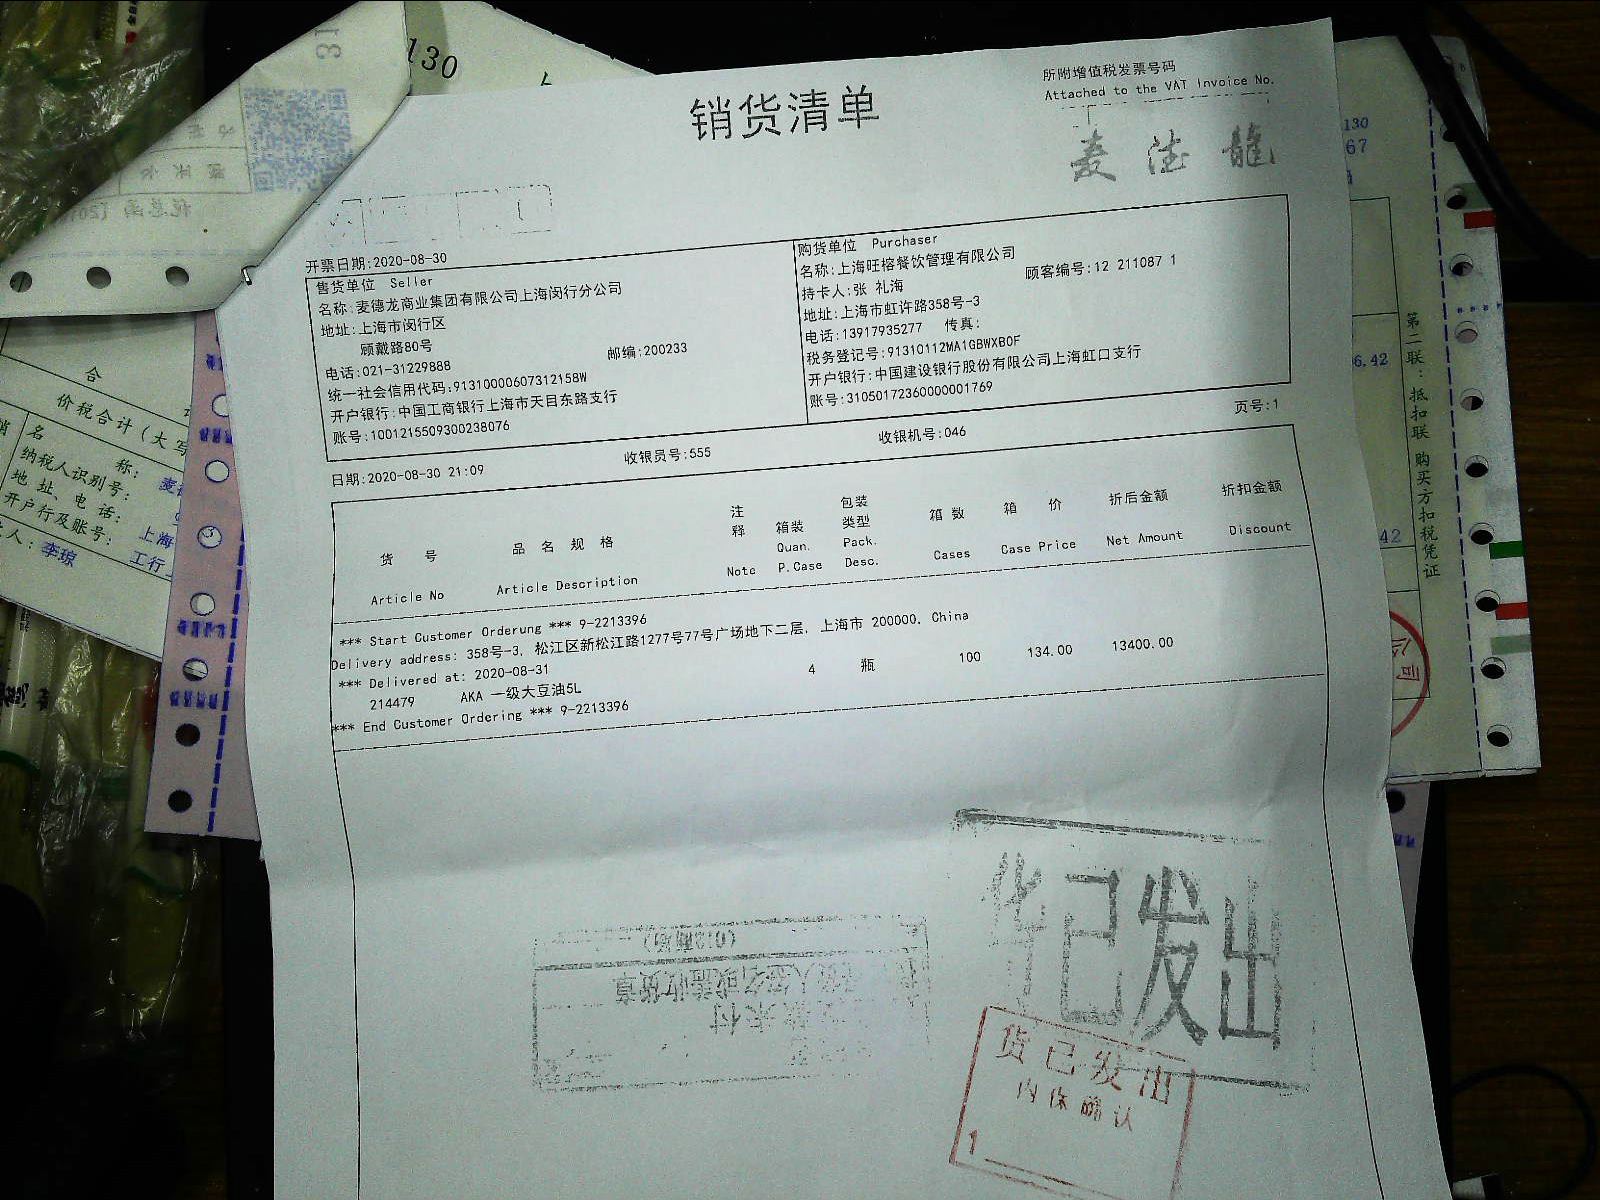 销货清单
所附增值税发票号码
Attached to the VAT Invoice No.
麦德龍
开票日期:2020-08-30
售货单位 Seller
名称:麦德龙商业集团有限公司上海闵行分公司
地址:上海市闵行区
顾戴路80号
邮编:200233
电话:021-31229888
统一社会信用代码:91310000607312158W
开户银行:中国工商银行上海市天目东路支行
账号:1001215509300238076
购货单位 Purchaser
名称:上海旺榕餐饮管理有限公司
顾客编号:12 211087 1
持卡人:张 礼海
地址:上海市虹许路358号-3
电话:13917935277 传真:
税务登记号:91310112MA1GBWXB0F
开户银行:中国建设银行股份有限公司上海虹口支行
账号:31050172360000001769
页号:1
日期:2020-08-30 21:09
收银员号:555
收银机号:046
货 号 品 名 规 格 注释 箱装 包装类型 箱 数 箱 价 折后金额 折扣金额
Article No Article Description Note Quan. P.Case Pack. Desc. Cases Case Price Net Amount Discount
*** Start Customer Orderung *** 9-2213396
Delivery address: 358号-3, 松江区新松江路1277号77号广场地下二层, 上海市 200000, China
*** Delivered at: 2020-08-31
214479 AKA 一级大豆油5L 4 瓶 100 134.00 13400.00
*** End Customer Ordering *** 9-2213396
货已发出
货已发出
内保确认
1
130
合
价税合计(大写
名 称:
纳税人识别号:
地 址、电 话:
开户行及账号:
上海
工行
人: 李琼
130
67
6.42
42
第二联:抵扣联 购买方扣税凭证